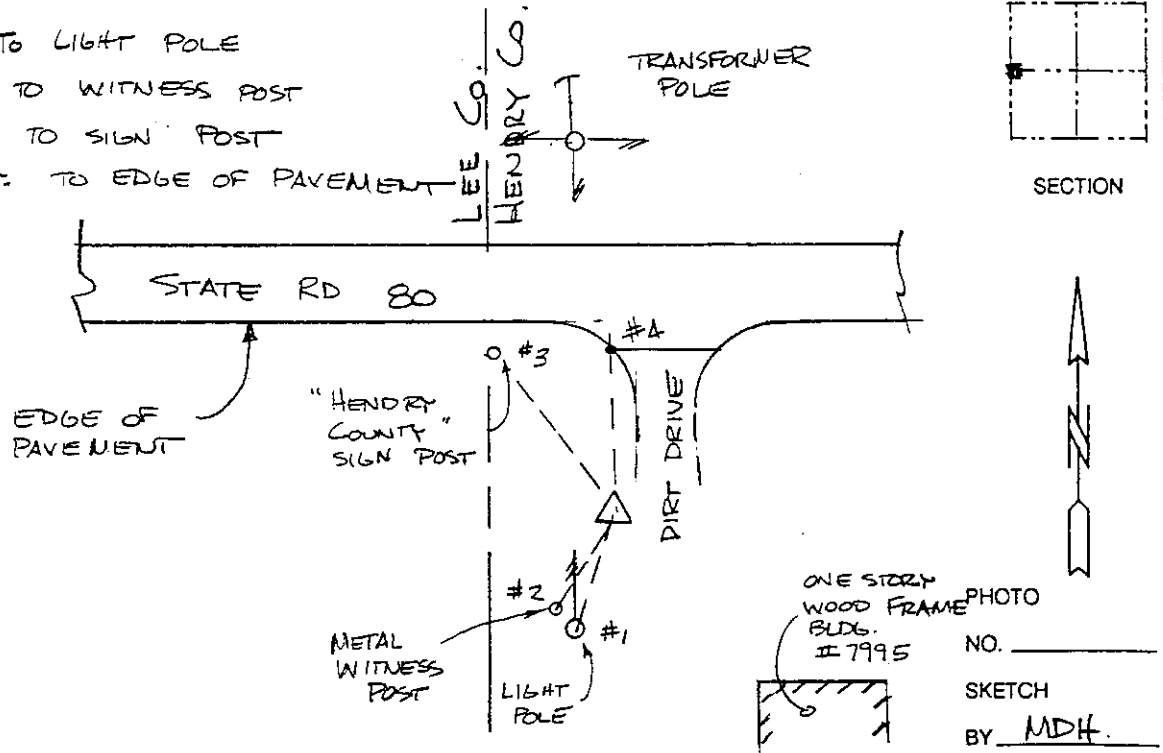 To LIGHT POLE
TO WITNESS POST
TO SIGN POST
: TO EDGE OF PAVEMENT
LEE CO.
HENDRY CO.
TRANSFORMER
POLE
SECTION
STATE RD 80
#4
#3
"HENDRY
COUNTY"
SIGN POST
EDGE OF
PAVEMENT
DIRT DRIVE
N
#2
#1
METAL
WITNESS
POST
LIGHT
POLE
ONE STORY
WOOD FRAME
BLDG.
#7995
PHOTO
NO.
SKETCH
BY MDH.